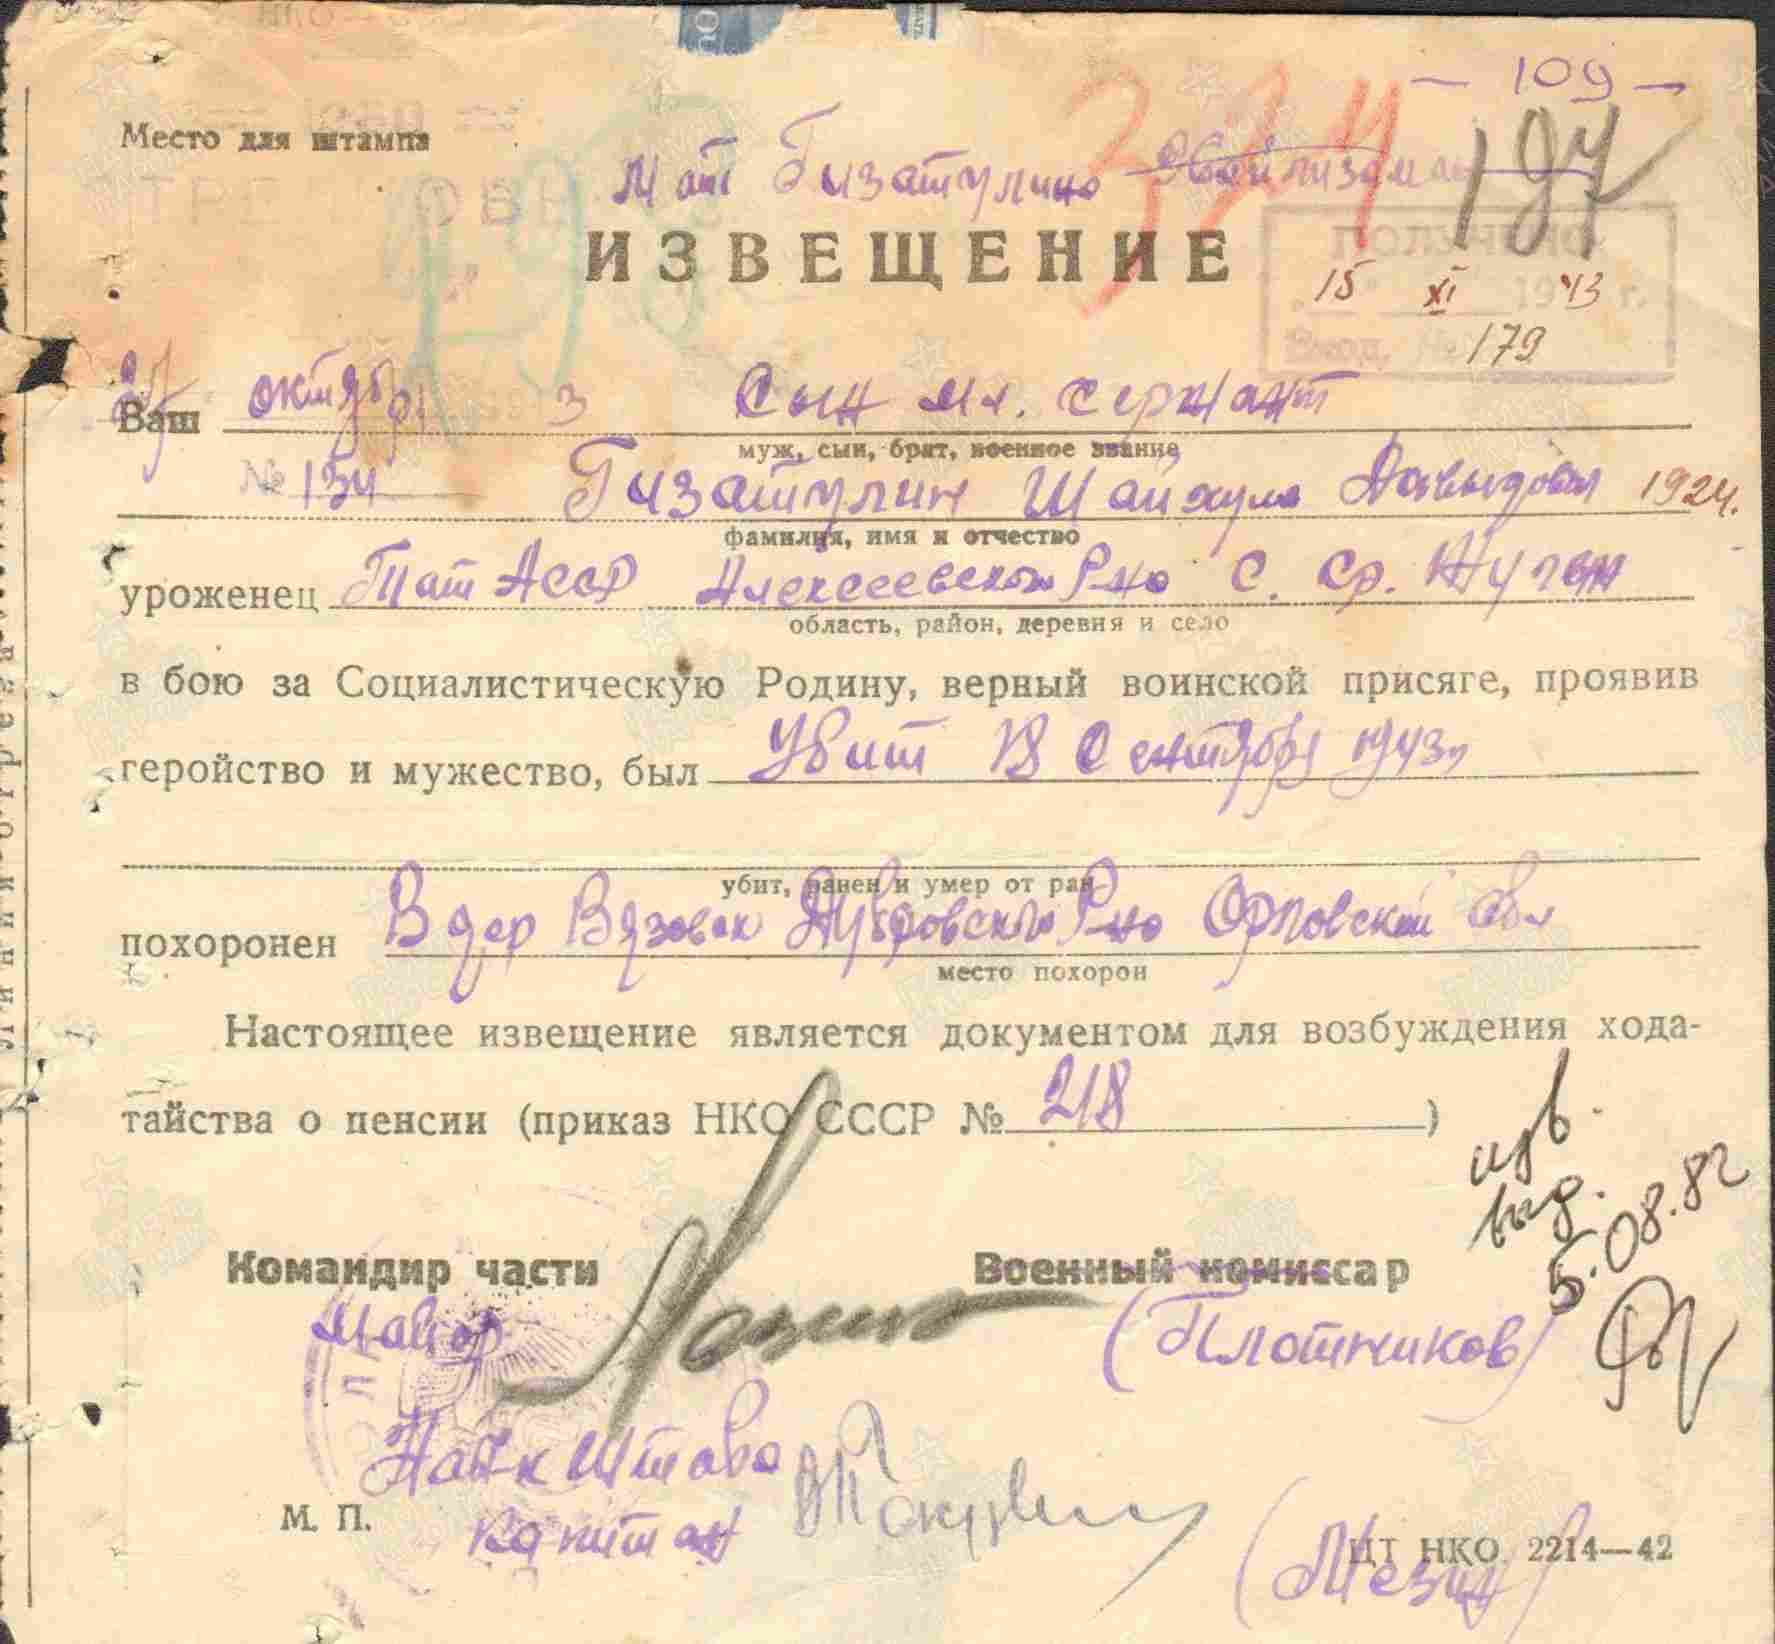 - 109 -
Место для штампа
324
197
Мат Гизатулино
ИЗВЕЩЕНИЕ
ПОЛУЧЕНО
15 XI 1943 г.
Вход. № 179
октября 3
Ваш Сын мл. сержант
муж, сын, брат, военное звание
№ 134 Гизатулин Шайхула 1924.
фамилия, имя и отчество
уроженец Тат Асср Алексеевского Р-но С. Ср.
область, район, деревня и село
в бою за Социалистическую Родину, верный воинской присяге, проявив
геройство и мужество, был Убит 18 Сентября 1943г
убит, ранен и умер от ран
похоронен В дер Вязовск Дубровского Р-но Орловской обл
место похорон
Настоящее извещение является документом для возбуждения хода-
тайства о пенсии (приказ НКО СССР № 218 )
изв.
выд.
5.08.82
Командир части Военный комиссар
Майор (Плотников)
Нач-к Штаба
М. П. капитан
ЦТ НКО 2214—42
(Мезин)
Линия отреза